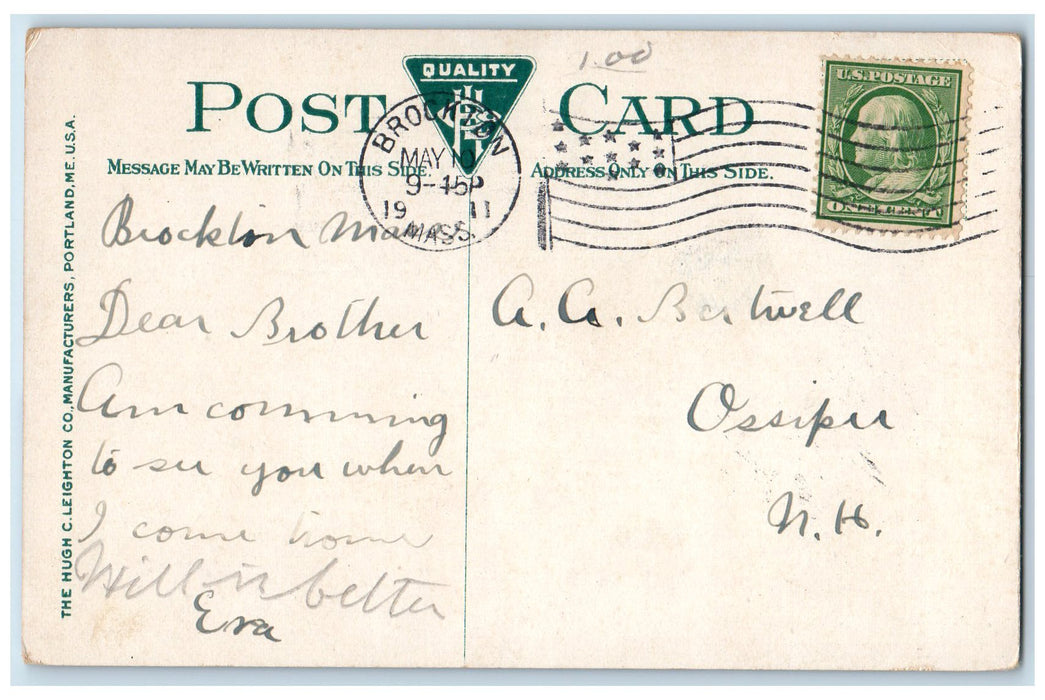 1.00
POST CARD
QUALITY
U.S. POSTAGE
ONE CENT
MESSAGE MAY BE WRITTEN ON THIS SIDE.
ADDRESS ONLY ON THIS SIDE.
BROCKTON
MAY 10
9-45P
19 11
MASS.
THE HUGH C. LEIGHTON CO., MANUFACTURERS, PORTLAND, ME. U.S.A.
Brockton Mass
Dear Brother
Am comming
to see you when
I come home
Will better
Eva
A. A. Bertwell
Ossipee
N. H.